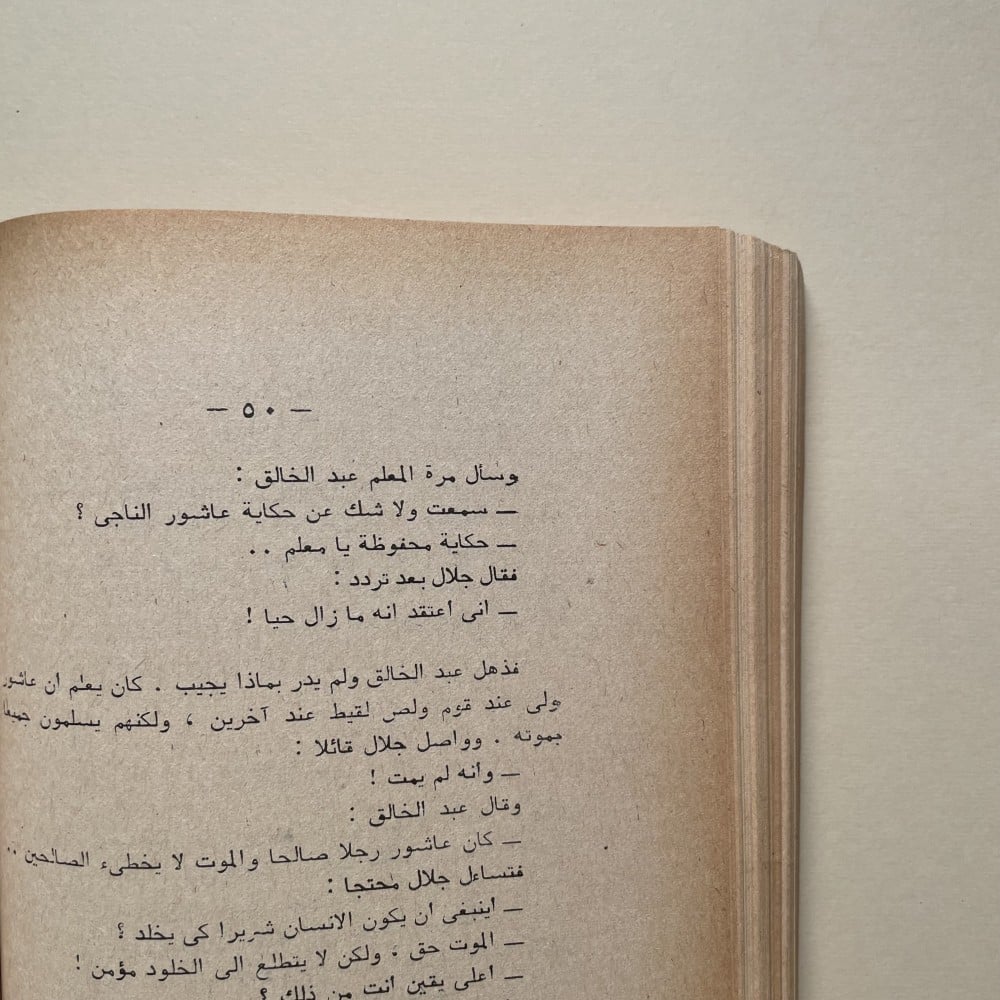 — ٥٠ —
وسأل مرة المعلم عبد الخالق :
— سمعت ولا شك عن حكاية عاشور الناجى ؟
— حكاية محفوظة يا معلم ..
فقال جلال بعد تردد :
— انى أعتقد انه ما زال حيا !
فذهل عبد الخالق ولم يدر بماذا يجيب . كان يعلم ان عاشور
ولى عند قوم ولص لقيط عند آخرين ، ولكنهم يسلمون جميعا
بموته . وواصل جلال قائلا :
— وأنه لم يمت !
وقال عبد الخالق :
— كان عاشور رجلا صالحا والموت لا يخطىء الصالحين ..
فتساءل جلال محتجا :
— اينبغى ان يكون الانسان شريرا كى يخلد ؟
— الموت حق ، ولكن لا يتطلع الى الخلود مؤمن !
— اعلى يقين انت من ذلك ؟